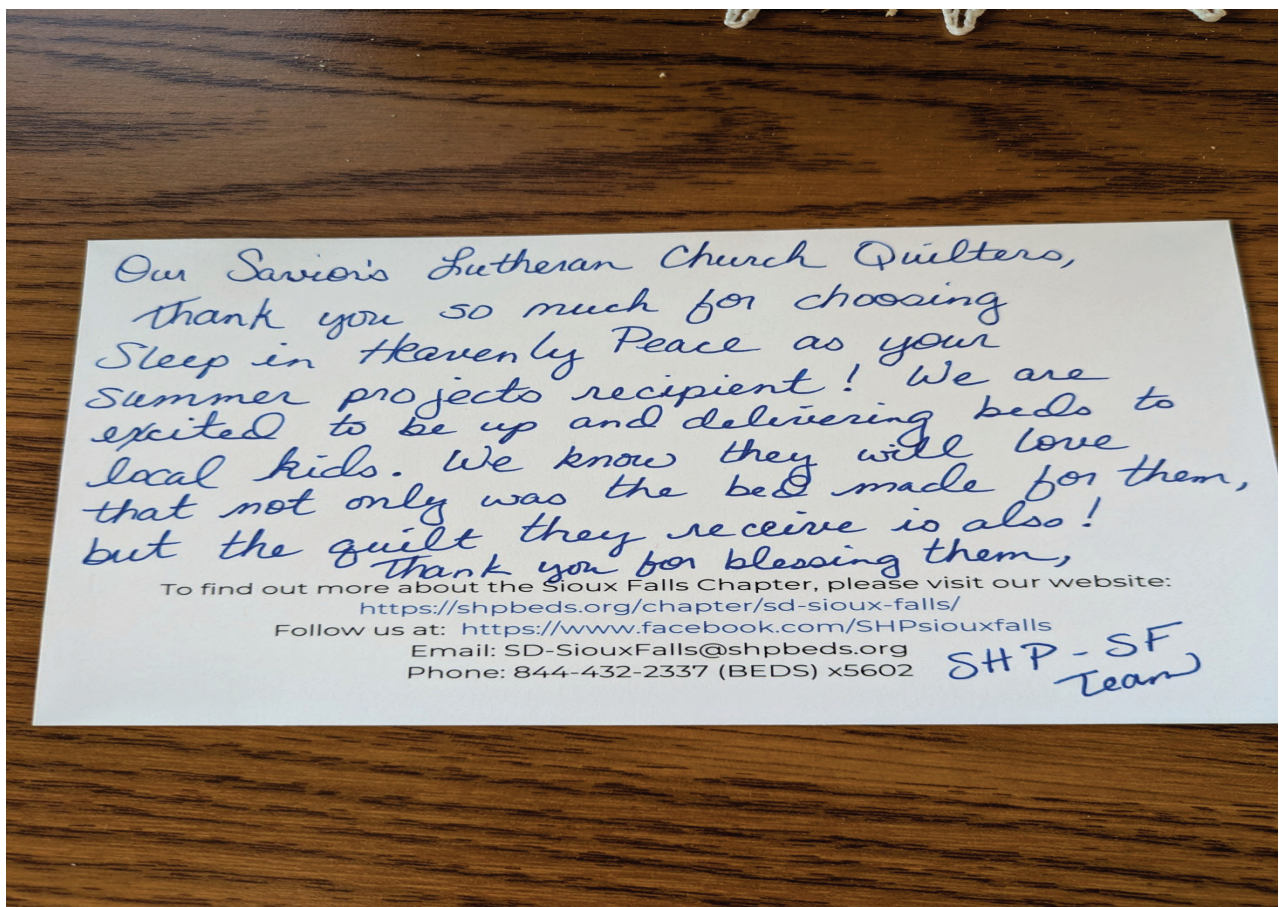 Our Savior's Lutheran Church Quilters,
Thank you so much for choosing
Sleep in Heavenly Peace as your
summer projects recipient! We are
excited to be up and delivering beds to
local kids. We know they will love
that not only was the bed made for them,
but the quilt they receive is also!
Thank you for blessing them,
To find out more about the Sioux Falls Chapter, please visit our website:
https://shpbeds.org/chapter/sd-sioux-falls/
Follow us at: https://www.facebook.com/SHPsiouxfalls
Email: SD-SiouxFalls@shpbeds.org
Phone: 844-432-2337 (BEDS) x5602
SHP - SF
Team